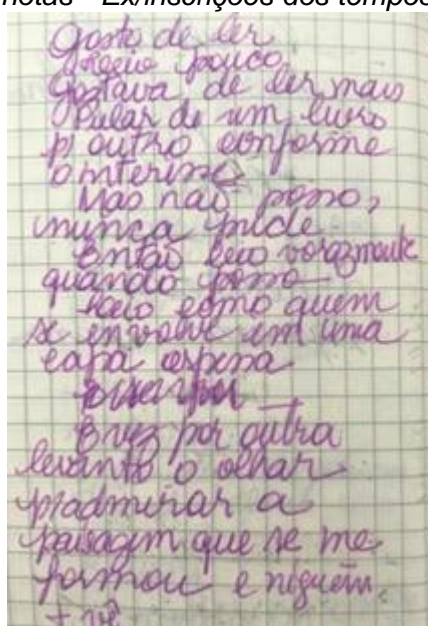 notas – Ex/inscrições dos tempos
Gosto de ler
Leio pouco
Gostava de ler mais
Pular de um livro
p/ outro conforme
o interesse
Mas não posso,
nunca pude.
Então leio vorazmente
quando posso
Leio como quem
se envolve em uma
capa espessa
E vez por outra
levanto o olhar
p/admirar a
paisagem que se me
formou e niguém
+ vê